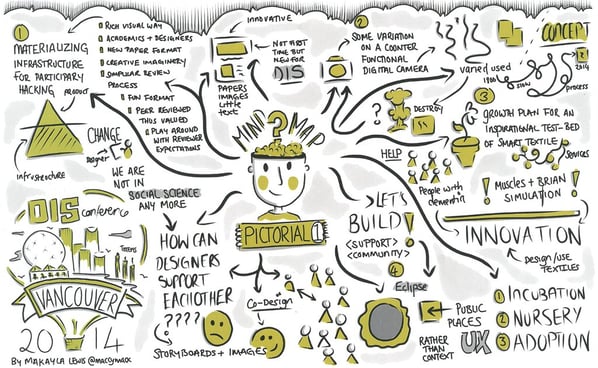 1
MATERIALIZING
INFRASTRUCTURE
FOR PARTICIPARY
HACKING
PRODUCT
infrastructure
CHANGE
Designer
WE ARE
NOT IN
SOCIAL SCIENCE
ANY MORE
RICH VISUAL WAY
ACADEMICS + DESIGNERS
NEW PAPER FORMAT
CREATIVE IMAGINERY
PROCESS
FUN FORMAT
PEER REVIEWED
THUS VALUED
PLAY AROUND
WITH REVIEWER
EXPECTATIONS
INNOVATIVE
PAPERS
IMAGES
Little
text
NOT FIRST
TIME BUT
NEW FOR
DIS
2
SOME VARIATION
ON A COUNTER
FUNCTIONAL
DIGITAL CAMERA
varied used
CONCEPT
1980
slow
2014
process
DESTROY
3
GROWTH PLAN FOR AN
INSPIRATIONAL TEST-BED
OF SMART TEXTILE
SERVICES
HELP
People with
dementia
! MUSCLES + BRIAN !
SIMULATION
INNOVATION
DESIGN/USE
TEXTILES
1 INCUBATION
2 NURSERY
3 ADOPTION
MIND ? MAP
PICTORIAL 1
>LET'S
BUILD!
<SUPPORT>
<COMMUNITY>
4
Eclipse
PUBLIC
PLACES
RATHER
THAN
CONTEXT
UX
HOW CAN
DESIGNERS
SUPPORT
EACHOTHER
????
STORYBOARDS + IMAGES
Co-Design
DIS
conference
TOTEMS
VANCOUVER
2014
BY MAKAYLA LEWIS @MACCYMACX